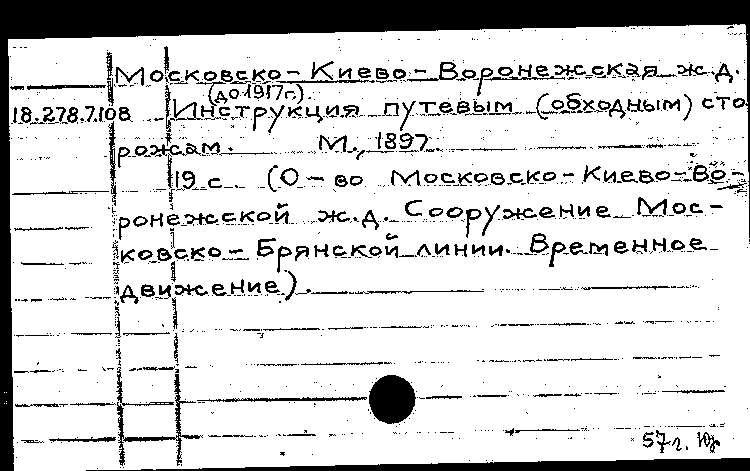 Московско-Киево-Воронежская ж.д.
(до 1917г.).
18.278.7.108 Инструкция путевым (обходным) сто
рожам. М., 1897.
19 с. (О-во Московско-Киево-Во-
ронежской ж.д. Сооружение Мос-
ковско-Брянской линии. Временное
движение).
57 г.